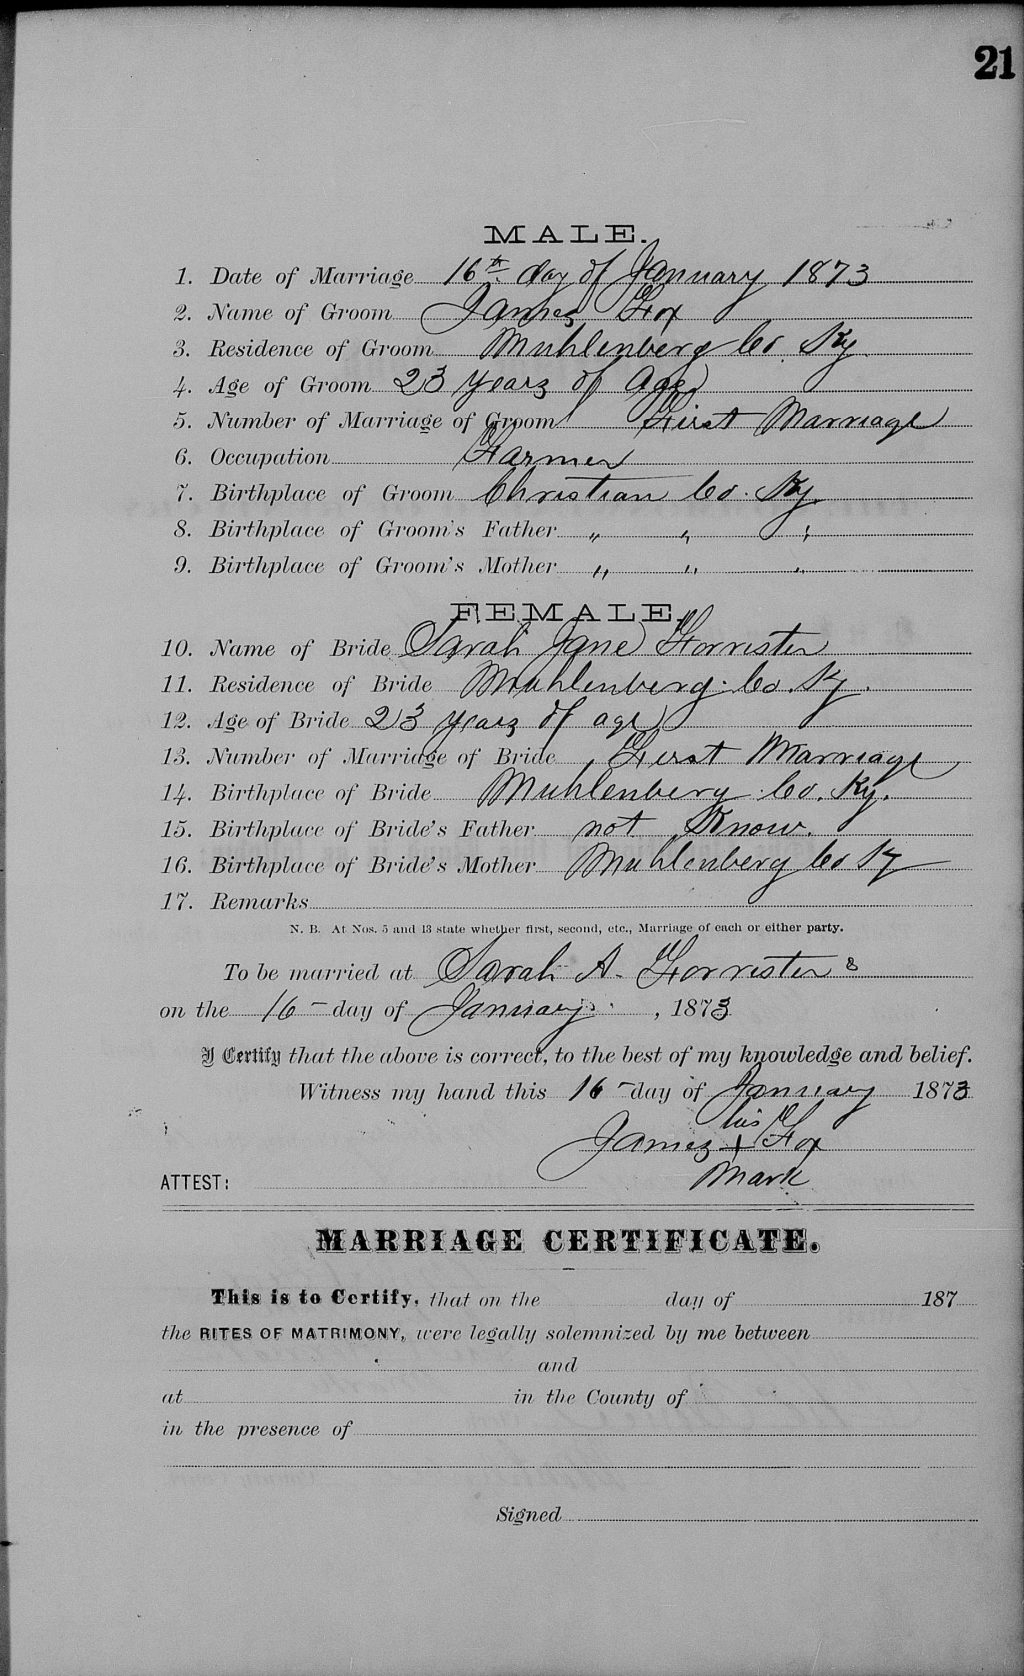 21
MALE.
1. Date of Marriage 16th day of January 1873
2. Name of Groom James Fox
3. Residence of Groom Muhlenberg Co. Ky.
4. Age of Groom 23 years of Age
5. Number of Marriage of Groom First Marriage
6. Occupation Farmer
7. Birthplace of Groom Christian Co. Ky.
8. Birthplace of Groom's Father " " "
9. Birthplace of Groom's Mother " " "
FEMALE.
10. Name of Bride Sarah Jane Forrister
11. Residence of Bride Muhlenberg Co. Ky.
12. Age of Bride 23 years of age
13. Number of Marriage of Bride First Marriage
14. Birthplace of Bride Muhlenberg Co. Ky.
15. Birthplace of Bride's Father not Know.
16. Birthplace of Bride's Mother Muhlenberg Co Ky
17. Remarks
N. B. At Nos. 5 and 13 state whether first, second, etc., Marriage of each or either party.
To be married at Sarah A. Forristers
on the 16 day of January, 1873
I Certify that the above is correct, to the best of my knowledge and belief.
Witness my hand this 16 day of January 1873
his
James + Fox
ATTEST: Mark
MARRIAGE CERTIFICATE.
This is to Certify, that on the day of 187
the RITES OF MATRIMONY, were legally solemnized by me between
and
at in the County of
in the presence of
Signed